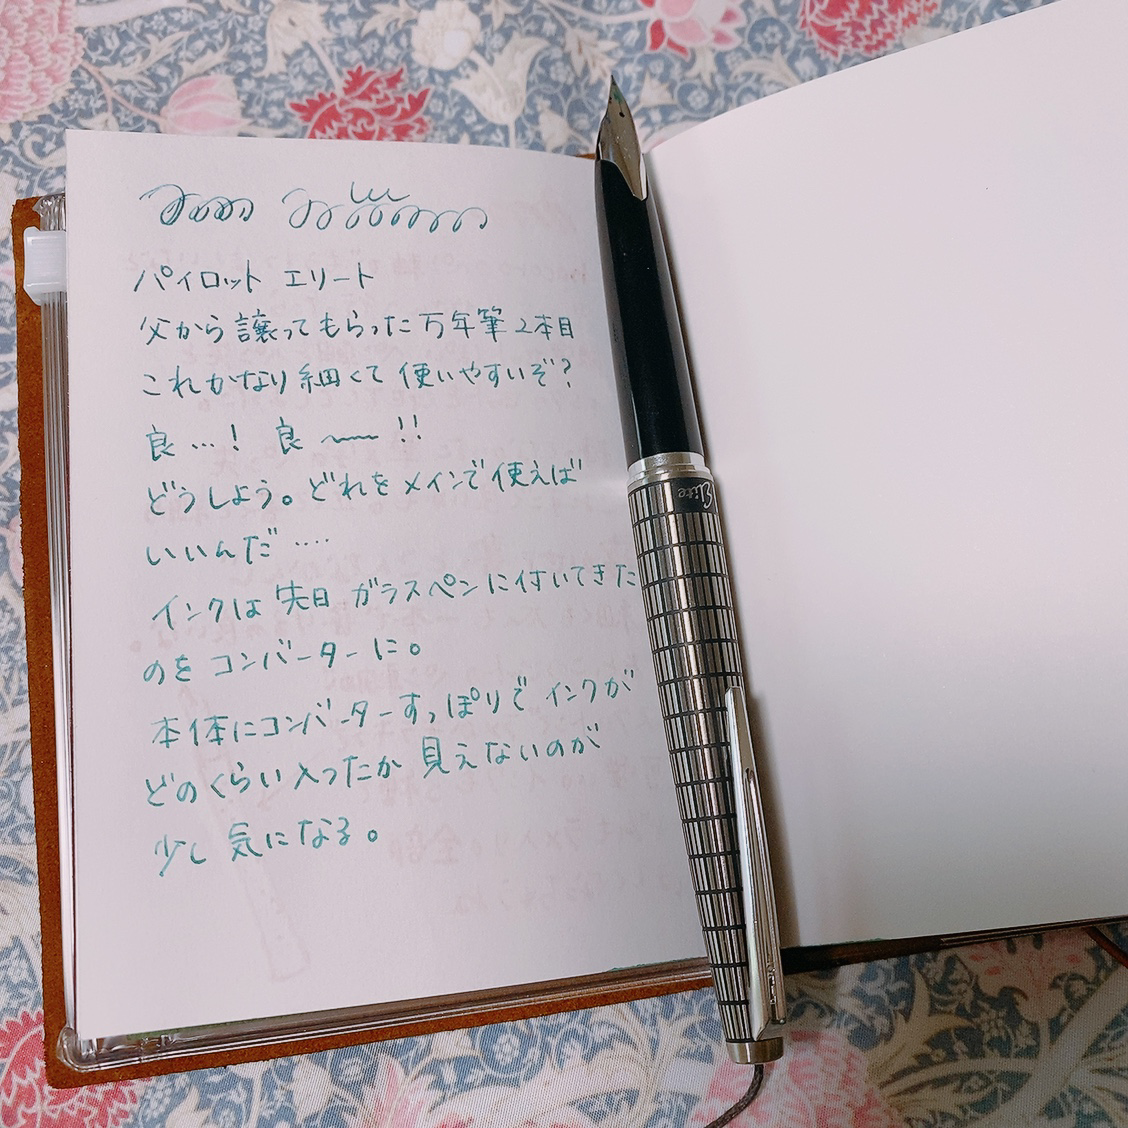 パイロット エリート
父から譲ってもらった万年筆2本目
これかなり細くて使いやすいぞ?
良…! 良〜〜!!
どうしよう。どれをメインで使えば
いいんだ‥‥
インクは先日ガラスペンに付いてきた
のをコンバーターに。
本体にコンバーターすっぽりでインクが
どのくらい入ったか見えないのが
少し気になる。
Elite